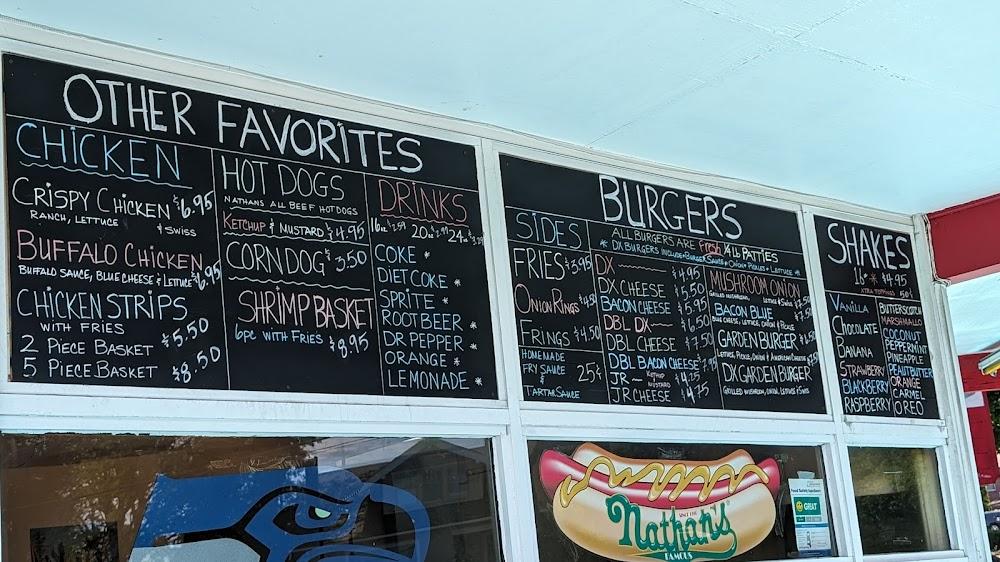 OTHER FAVORITES
CHICKEN
CRISPY CHICKEN $6.95
RANCH, LETTUCE & SWISS
BUFFALO CHICKEN $6.95
BUFFALO SAUCE, BLUE CHEESE & LETTUCE
CHICKEN STRIPS
WITH FRIES
2 PIECE BASKET $5.50
5 PIECE BASKET $8.50
HOT DOGS
NATHANS ALL BEEF HOT DOGS
KETCHUP & MUSTARD $4.95
CORN DOG $3.50
SHRIMP BASKET
6PC WITH FRIES $8.95
DRINKS
16oz 20oz 24oz
COKE *
DIET COKE *
SPRITE *
ROOT BEER *
DR PEPPER *
ORANGE *
LEMONADE *
BURGERS
ALL BURGERS ARE Fresh ¼ LB PATTIES
* DX BURGERS INCLUDE * BURGER SAUCE * ONION * PICKLES * LETTUCE *
SIDES
FRIES $3.95
ONION RINGS
FRINGS $4.50
HOMEMADE
FRY SAUCE
&
TARTAR SAUCE
25¢
DX $4.95
DX CHEESE $5.50
BACON CHEESE $5.95
DBL DX $6.50
DBL CHEESE $7.50
DBL BACON CHEESE
JR KETCHUP & MUSTARD $4.25
JR CHEESE $4.75
MUSHROOM ONION
GRILLED MUSHROOM, LETTUCE & SWISS
BACON BLUE
BLUE CHEESE, LETTUCE, ONION & PICKLE
GARDEN BURGER
LETTUCE, PICKLE, ONION & AMERICAN CHEESE
DX GARDEN BURGER
GRILLED MUSHROOM, ONION, LETTUCE & SWISS
SHAKES
16oz $4.95
XTRA TOPPINGS 50¢
VANILLA
CHOCOLATE
BANANA
STRAWBERRY
BLACKBERRY
RASPBERRY
BUTTERSCOTCH
MARSHMALLO
COCONUT
PEPPERMINT
PINEAPPLE
PEAUTBUTTER
ORANGE
CARMEL
OREO
SINCE 1916
Nathan's
FAMOUS